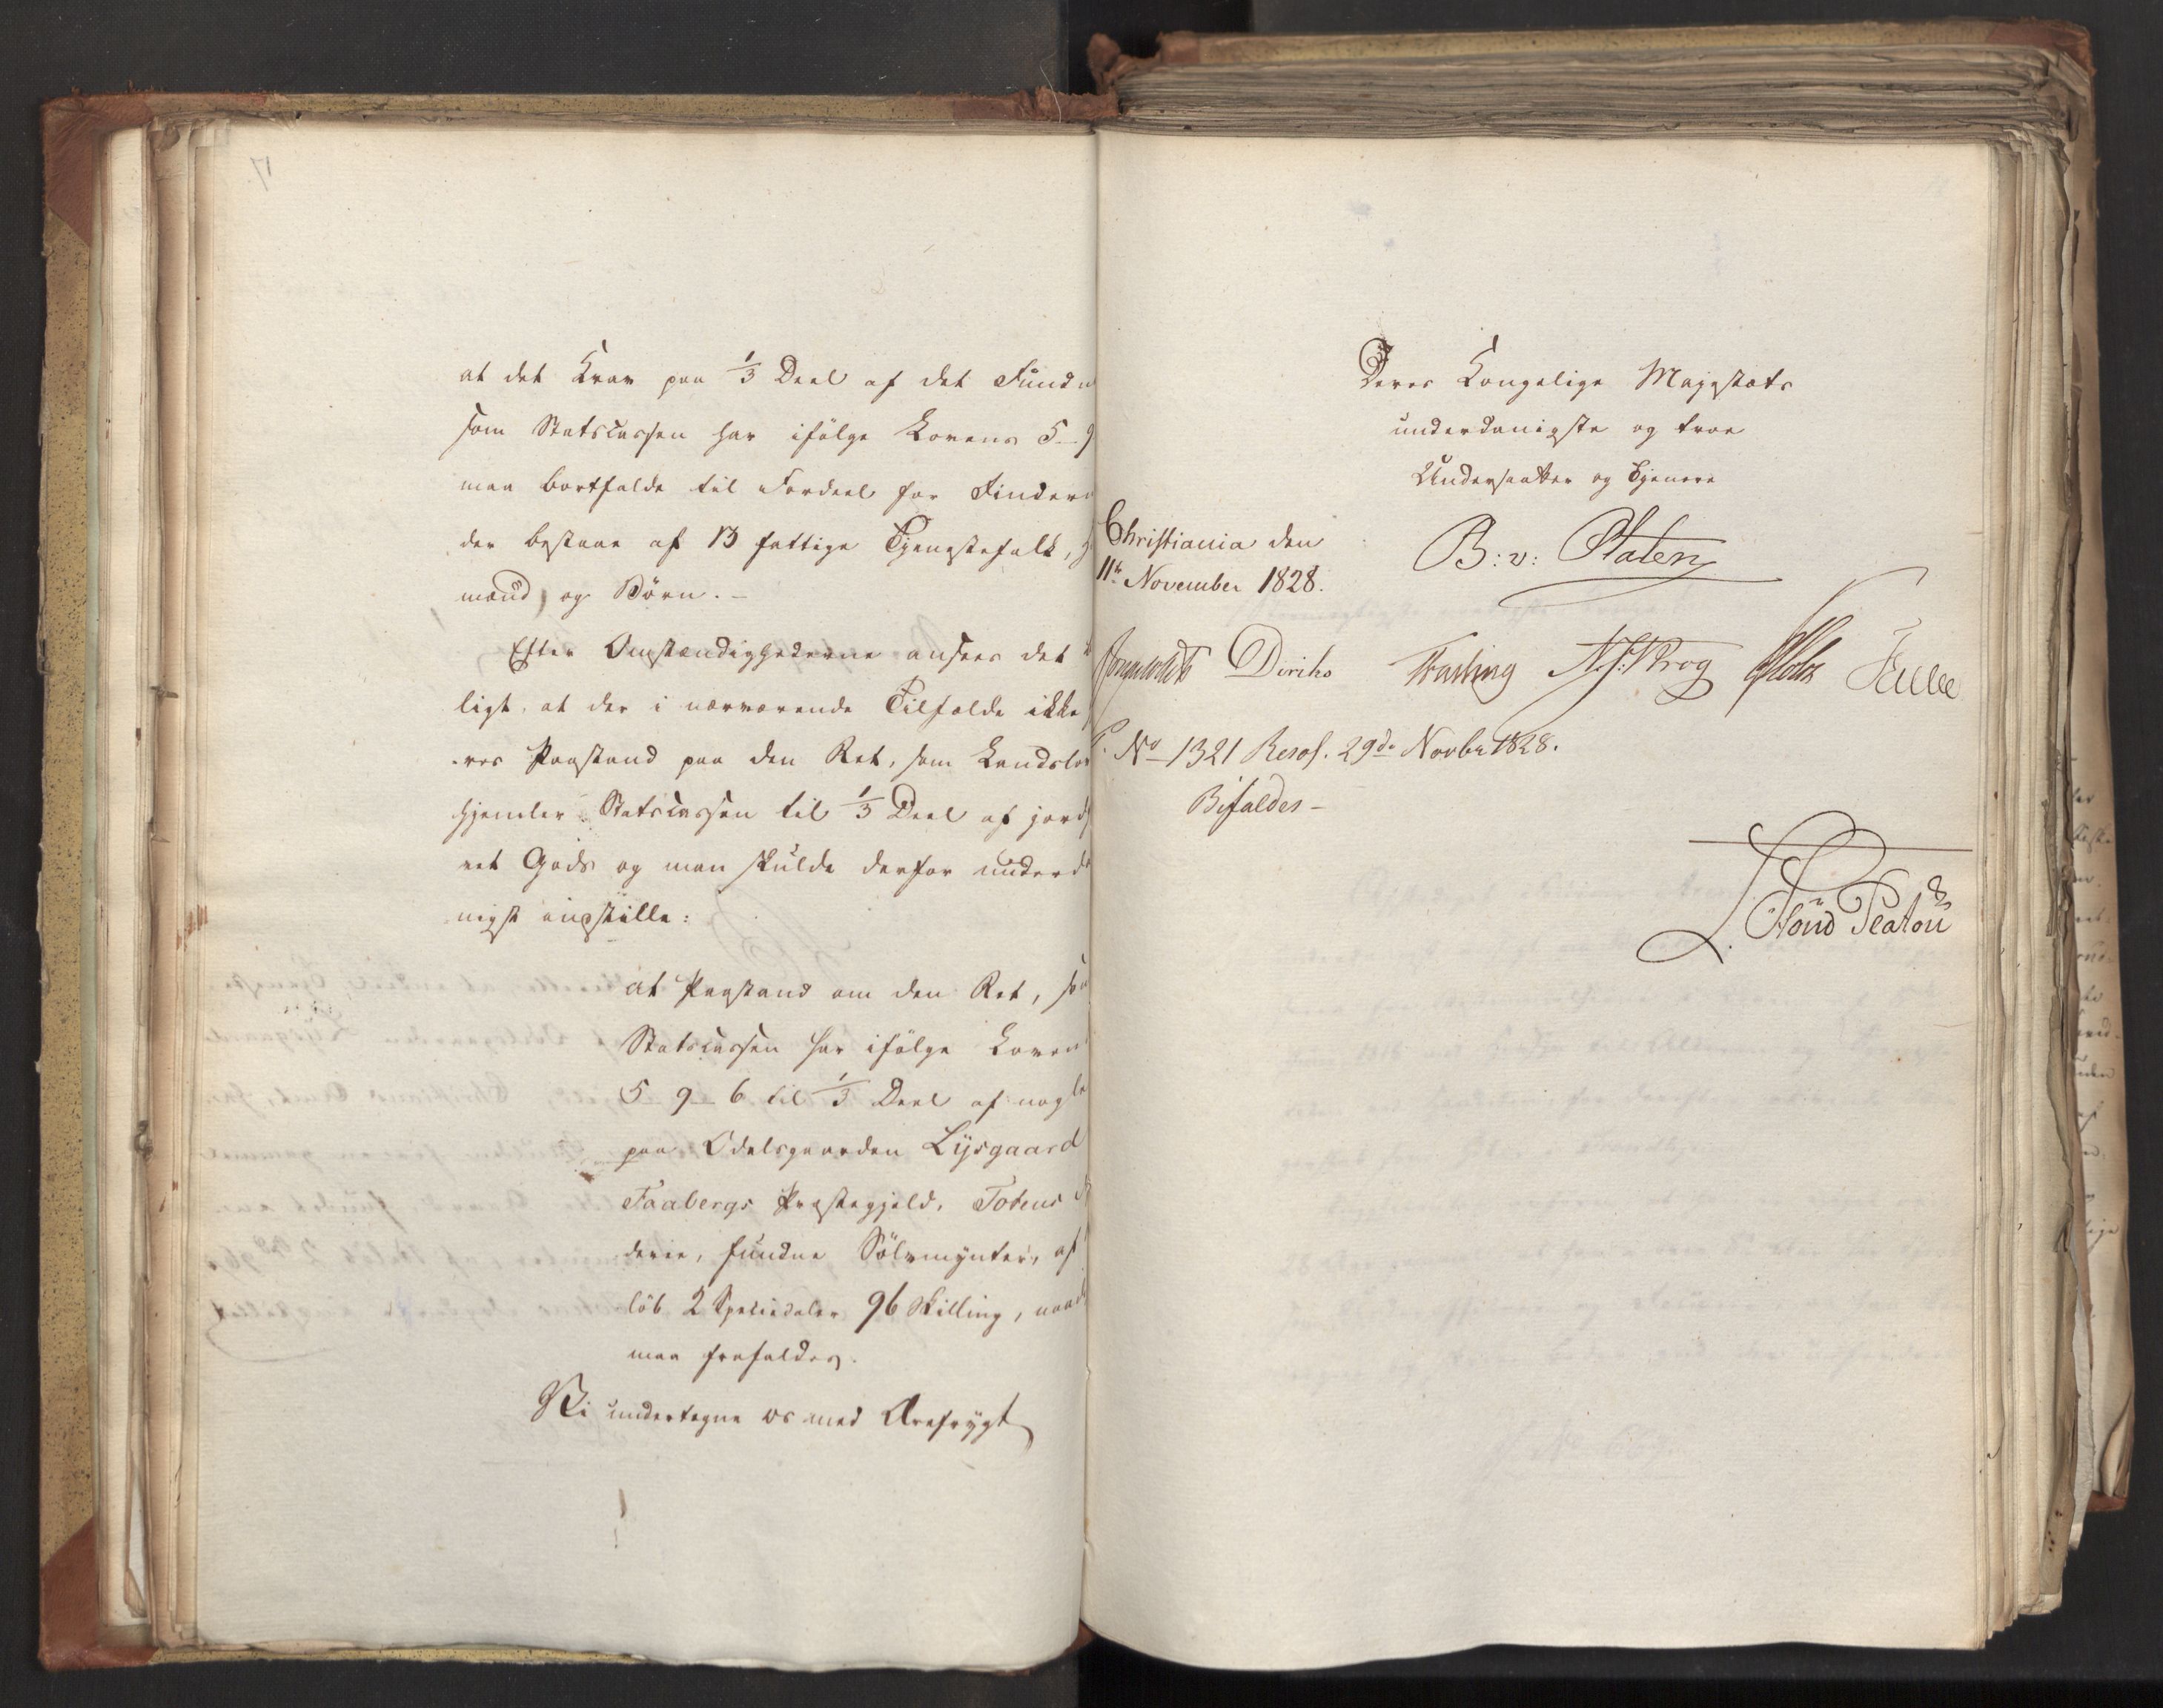 at det Krav paa 1/3 Deel af det Fundne
som Statscassen har ifölge Lovens 5-9
maa bortfalde til Fordeel for Finderne
der bestaae af 13 fattige Tjenestefolk,
mænd, og Börn.-
Efter Omstændighederne ansees det
ligt, at der i nærværende Tilfælde ikke
res Paastand paa den Ret, som Landslov
hjemler Statscassen til 1/3 Deel af jord
net Gods og man skulde derfor underda
nigst indstille:
at Paastand om den Ret, som
Statscassen har ifölge Loven
5-9-6 til 1/3 Deel af nogle
paa Odelsgaarden Lysgaard
Faabergs Præstegjeld, Totens
derie, fundne Sölvmynter, af
löb 2 Speciedaler 96 Skilling, naad
maa frafaldes.
Vi undertegne os med Ærefrygt
Deres Kongelige Majestæts
underdanigste og troe
Undersaatter og Tjenere
Christiania den
11te November 1828.
B: v: Platen
Diriks Fasting
No 1321 Resol. 29de Novbr 1828.
Bifaldes-